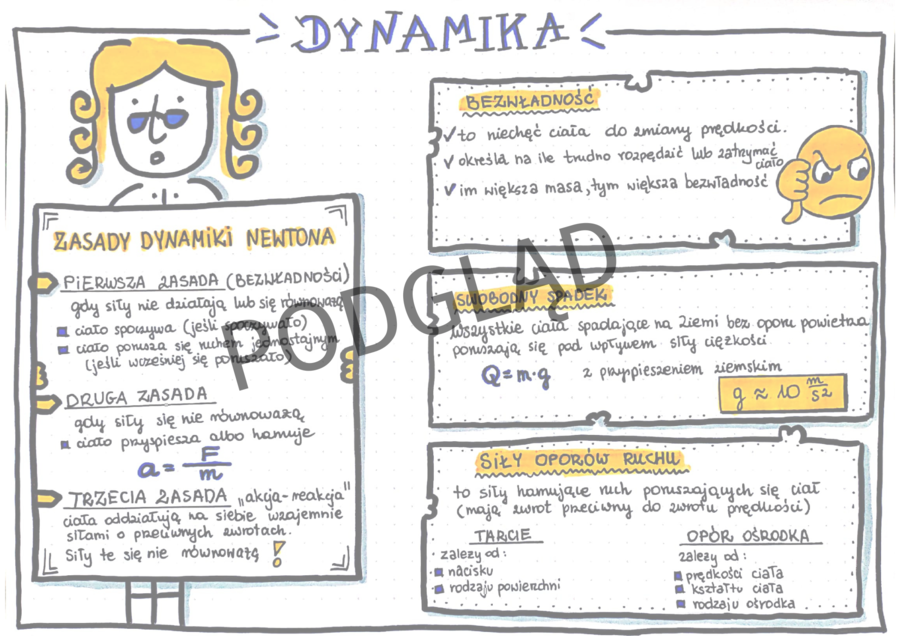 DYNAMIKA
ZASADY DYNAMIKI NEWTONA
PIERWSZA ZASADA (BEZWŁADNOŚCI)
gdy siły nie działają lub się równoważą
ciało spoczywa (jeśli spoczywało)
ciało porusza się ruchem jednostajnym
(jeśli wcześniej się poruszało)
DRUGA ZASADA
gdy siły się nie równoważą
ciało przyspiesza albo hamuje
a = F/m
TRZECIA ZASADA „akcja-reakcja"
ciała oddziałują na siebie wzajemnie
siłami o przeciwnych zwrotach.
Siły te się nie równoważą !
BEZWŁADNOŚĆ
✓ to niechęć ciała do zmiany prędkości.
✓ określa na ile trudno rozpędzić lub zatrzymać
ciało
✓ im większa masa, tym większa bezwładność
SWOBODNY SPADEK
Wszystkie ciała spadające na Ziemi bez oporu powietrza
poruszają się pod wpływem siły ciężkości
Q = m·g z przyspieszeniem ziemskim
g ≈ 10 m/s²
SIŁY OPORÓW RUCHU
to siły hamujące ruch poruszających się ciał
(mają zwrot przeciwny do zwrotu prędkości)
TARCIE
zależy od:
nacisku
rodzaju powierzchni
OPÓR OŚRODKA
zależy od:
prędkości ciała
kształtu ciała
rodzaju ośrodka
PODGLĄD